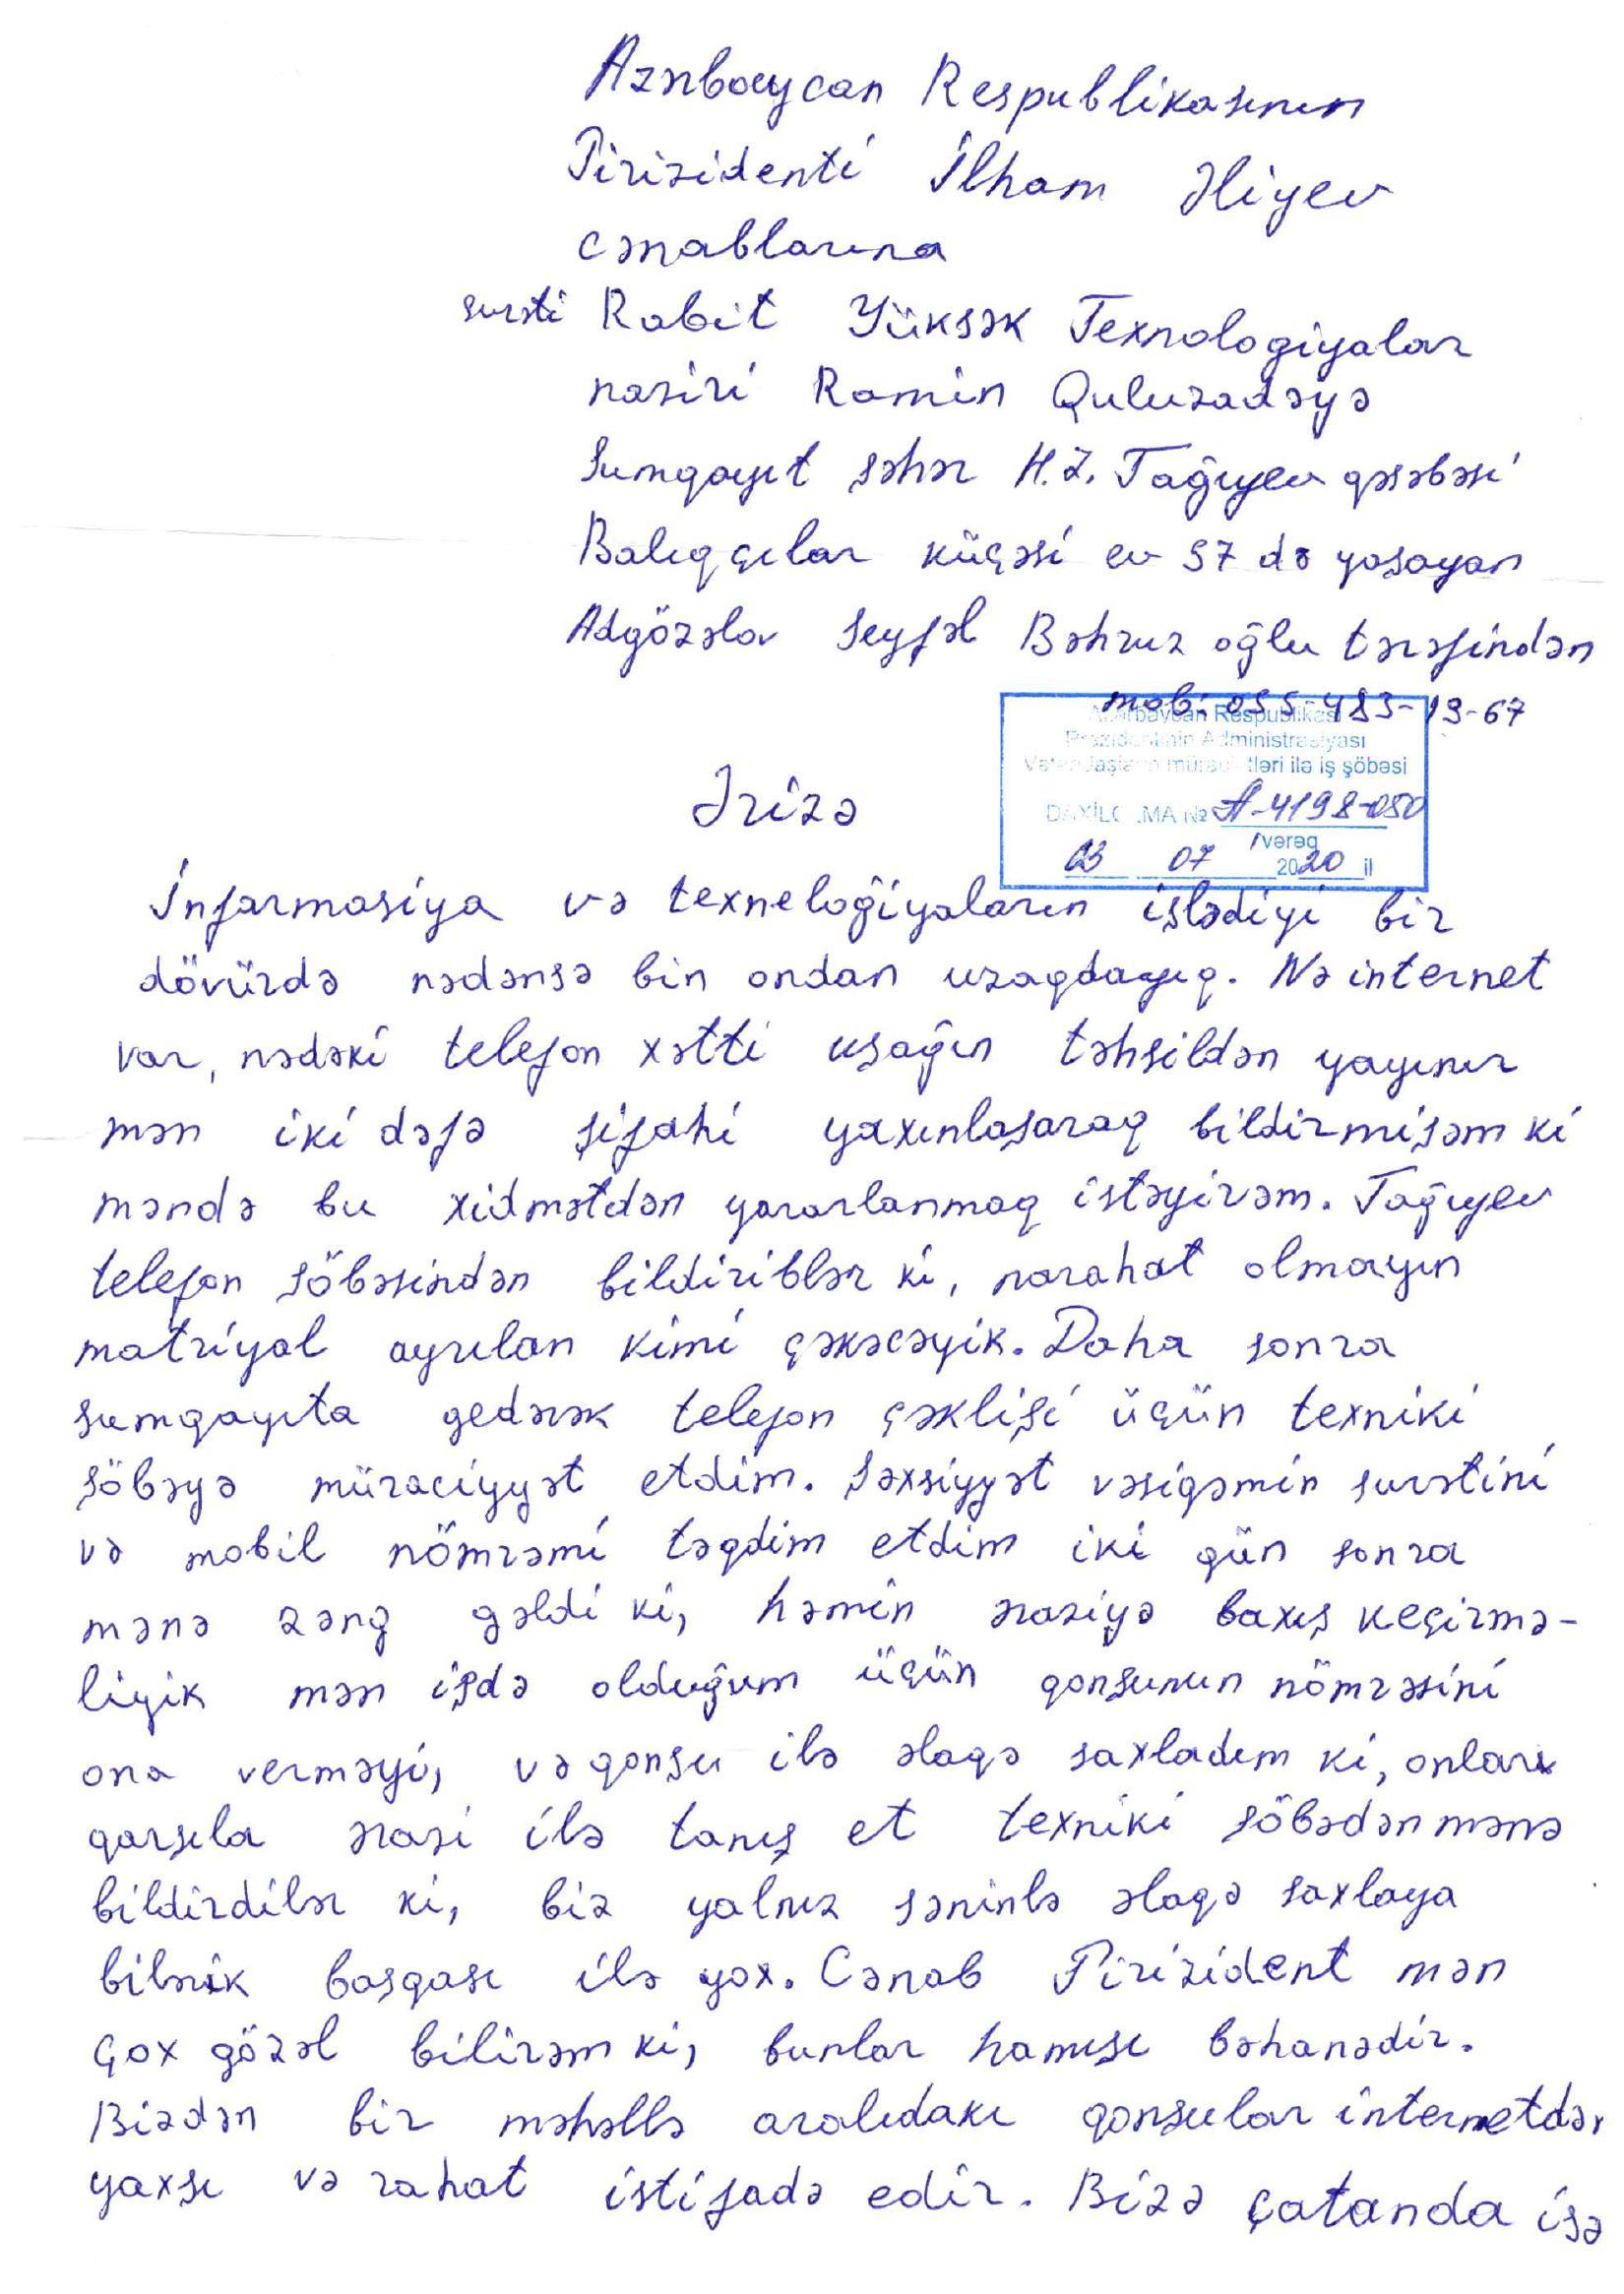 Azərbaycan Respublikasının
Pirizidenti İlham Əliyev
cənablarına
surəti Rabit Yüksək Texnologiyalar
naziri Ramin Quluzadəyə
Sumqayıt şəhər H.Z. Tağıyev qəsəbəsi
Balıqçılar küçəsi ev 57 də yaşayan
Adgözəlov Seyfəl Bəhruz oğlu tərəfindən
mob: 055-483-19-67
Azərbaycan Respublikası
Prezidentinin Administrasiyası
Vətəndaşların müraciətləri ilə iş şöbəsi
DAXİLOLMA № A-4198-050
1 vərəq
03 07 2020 il
Ərizə
İnfarmasiya və texneloğiyaların işlədiyi bir
dövürdə nədənsə bin ondan uzaqdayıq. Nə internet
var, nədəki telefon xətti uşağın təhsildən yayınır
mən iki dəfə şifahi yaxınlaşaraq bildirmişəm ki
məndə bu xidmətdən yararlanmaq istəyirəm. Tağıyev
telefon şöbəsindən bildiriblər ki, narahat olmayın
matriyal ayrılan kimi çəkəcəyik. Daha sonra
sumqayıta gedərək telefon çəklişi üçün texniki
şöbəyə müraciyyət etdim. Şəxsiyyət vəsiqəmin surətini
və mobil nömrəmi təqdim etdim iki gün sonra
mənə zəng gəldi ki, həmin əraziyə baxış keçirmə-
liyik mən işdə olduğum üçün qonşunun nömrəsini
ona verməyi, və qonşu ilə əlaqə saxladım ki, onları
qarşıla ərazi ilə tanış et texniki şöbədən mənə
bildirdilər ki, biz yalnız səninlə əlaqə saxlaya
bilərik başqası ilə yox. Cənab Pirizident mən
çox gözəl bilirəm ki, bunlar hamısı bəhanədir.
Bizdən bir məhəllə aralıdakı qonşular internetdən
yaxşı və rahat istifadə edir. Bizə çatanda isə